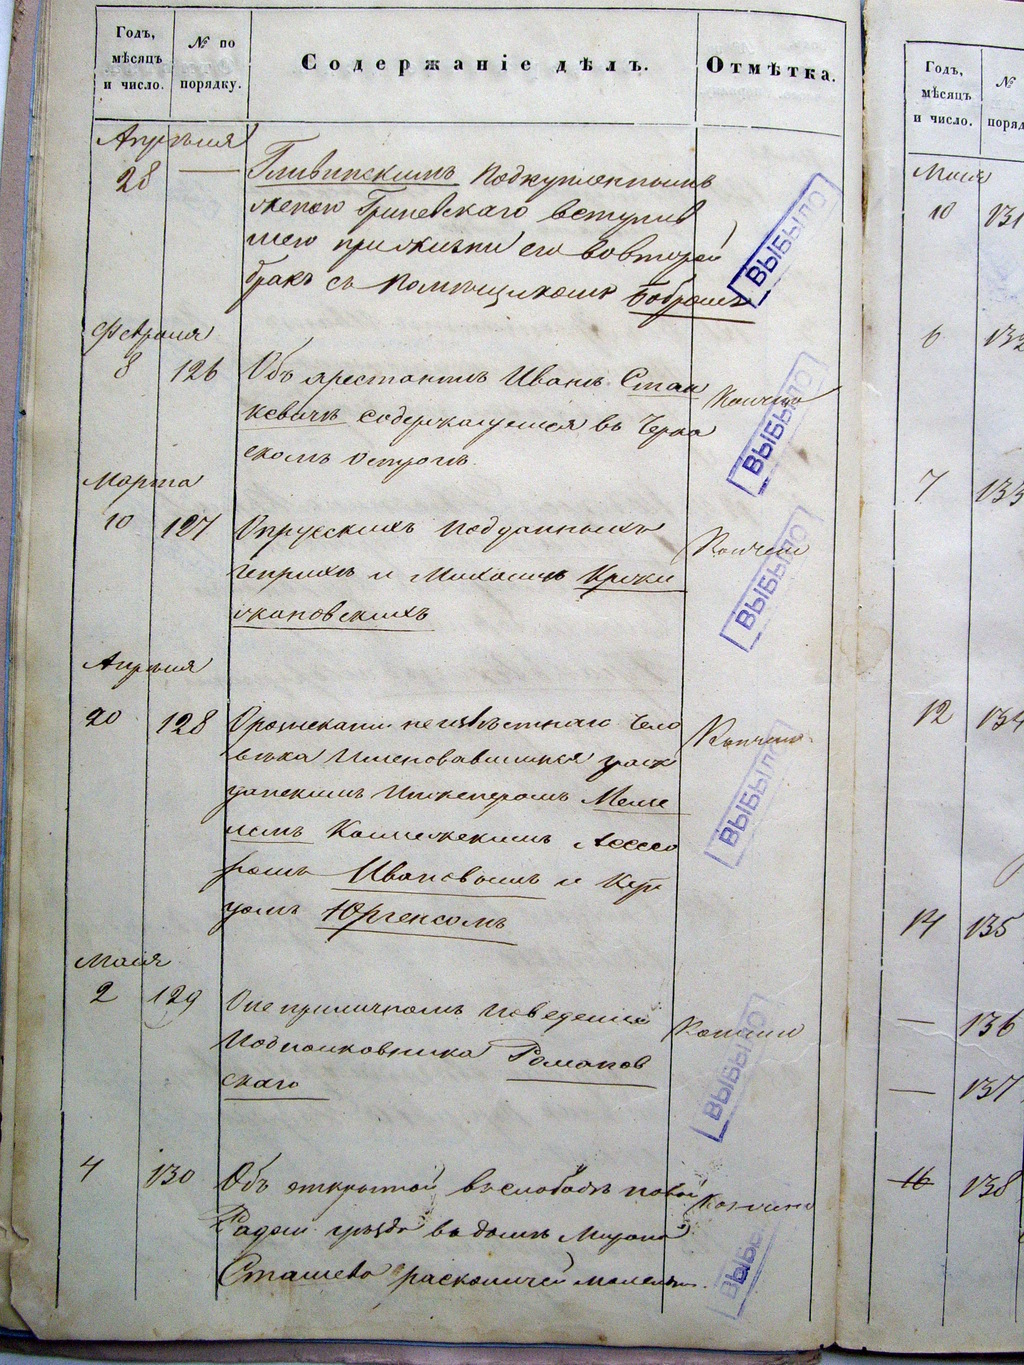 Годъ,
мѣсяцъ
и число.
№ по
порядку.
Содержаніе дѣлъ.
Отмѣтка.
Апрѣля
28
Гливинскимъ подкупленнымъ
женою Гриневскаго вступив
шею при жизни его во второй
бракъ съ помѣщикомъ Бобромъ
ВЫБЫЛО
Февраля
8 126 Объ арестантѣ Иванѣ Стан
кевичѣ содержащемся въ Черка
скомъ острогѣ
Кончено
ВЫБЫЛО
Марта
10 127 О прусскихъ подданныхъ
Генрихѣ и Михаилѣ Кржи
жановскихъ
Кончено
ВЫБЫЛО
Апрѣля
20 128 О розысканіи неизвѣстнаго чело
вѣка именовавшимся граж
данскимъ инженеромъ
Коллежскимъ Ассесо
ромъ Ивановымъ и
Юргенсомъ
Кончено
ВЫБЫЛО
Маія
2 129 О неприличномъ поведеніи
Подполковника Романов
скаго
Кончено
ВЫБЫЛО
4 130 Объ открытой въ слободѣ новой
въ домѣ Мирона
Сташева раскольничей
Кончено
ВЫБЫЛО
Годъ,
мѣсяцъ
и число.
№
поряд
Маія
10 131
6 132
7 133
12 134
14 135
— 136
— 137
16 138